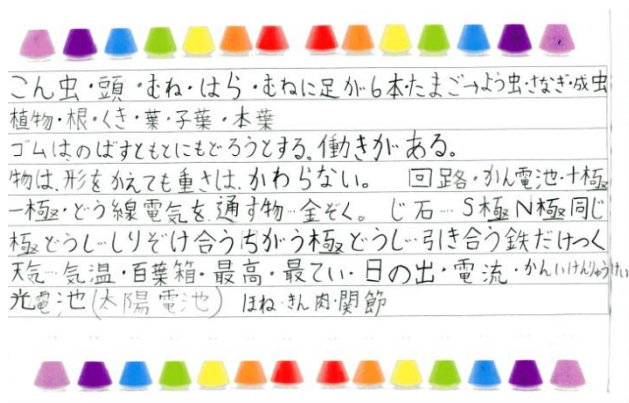 こん虫・頭・むね・はら・むねに足が6本・たまご→よう虫・さなぎ・成虫
植物・根・くき・葉・子葉・本葉
ゴムは、のばすともとにもどろうとする。働きがある。
物は、形をかえても重さは、かわらない。 回路・かん電池・+極
ー極・どう線電気を通す物…金ぞく。 じ石…S極N極同じ
極どうし…しりぞけ合うちがう極どうし…引き合う鉄だけつく
天気…気温・百葉箱・最高・最てい・日の出・電流・かんいけんりゅうけい
光電池(太陽電池) ほね・きん肉・関節